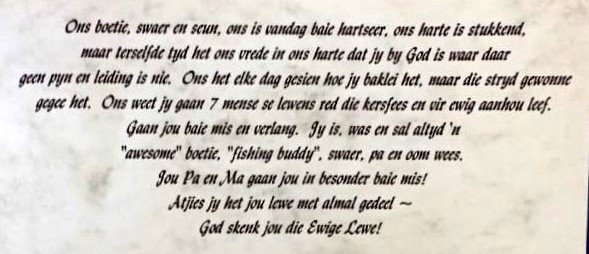 Ons boetie, swaer en seun, ons is vandag baie hartseer, ons harte is stukkend,
maar terselfde tyd het ons vrede in ons harte dat jy by God is waar daar
geen pyn en leiding is nie. Ons het elke dag gesien hoe jy baklei het, maar die stryd gewonne
gegee het. Ons weet jy gaan 7 mense se lewens red die kersfees en vir ewig aanhou leef.
Gaan jou baie mis en verlang. Jy is, was en sal altyd 'n
"awesome" boetie, "fishing buddy", swaer, pa en oom wees.
Jou Pa en Ma gaan jou in besonder baie mis!
Atjies jy het jou lewe met almal gedeel ~
God skenk jou die Ewige Lewe!